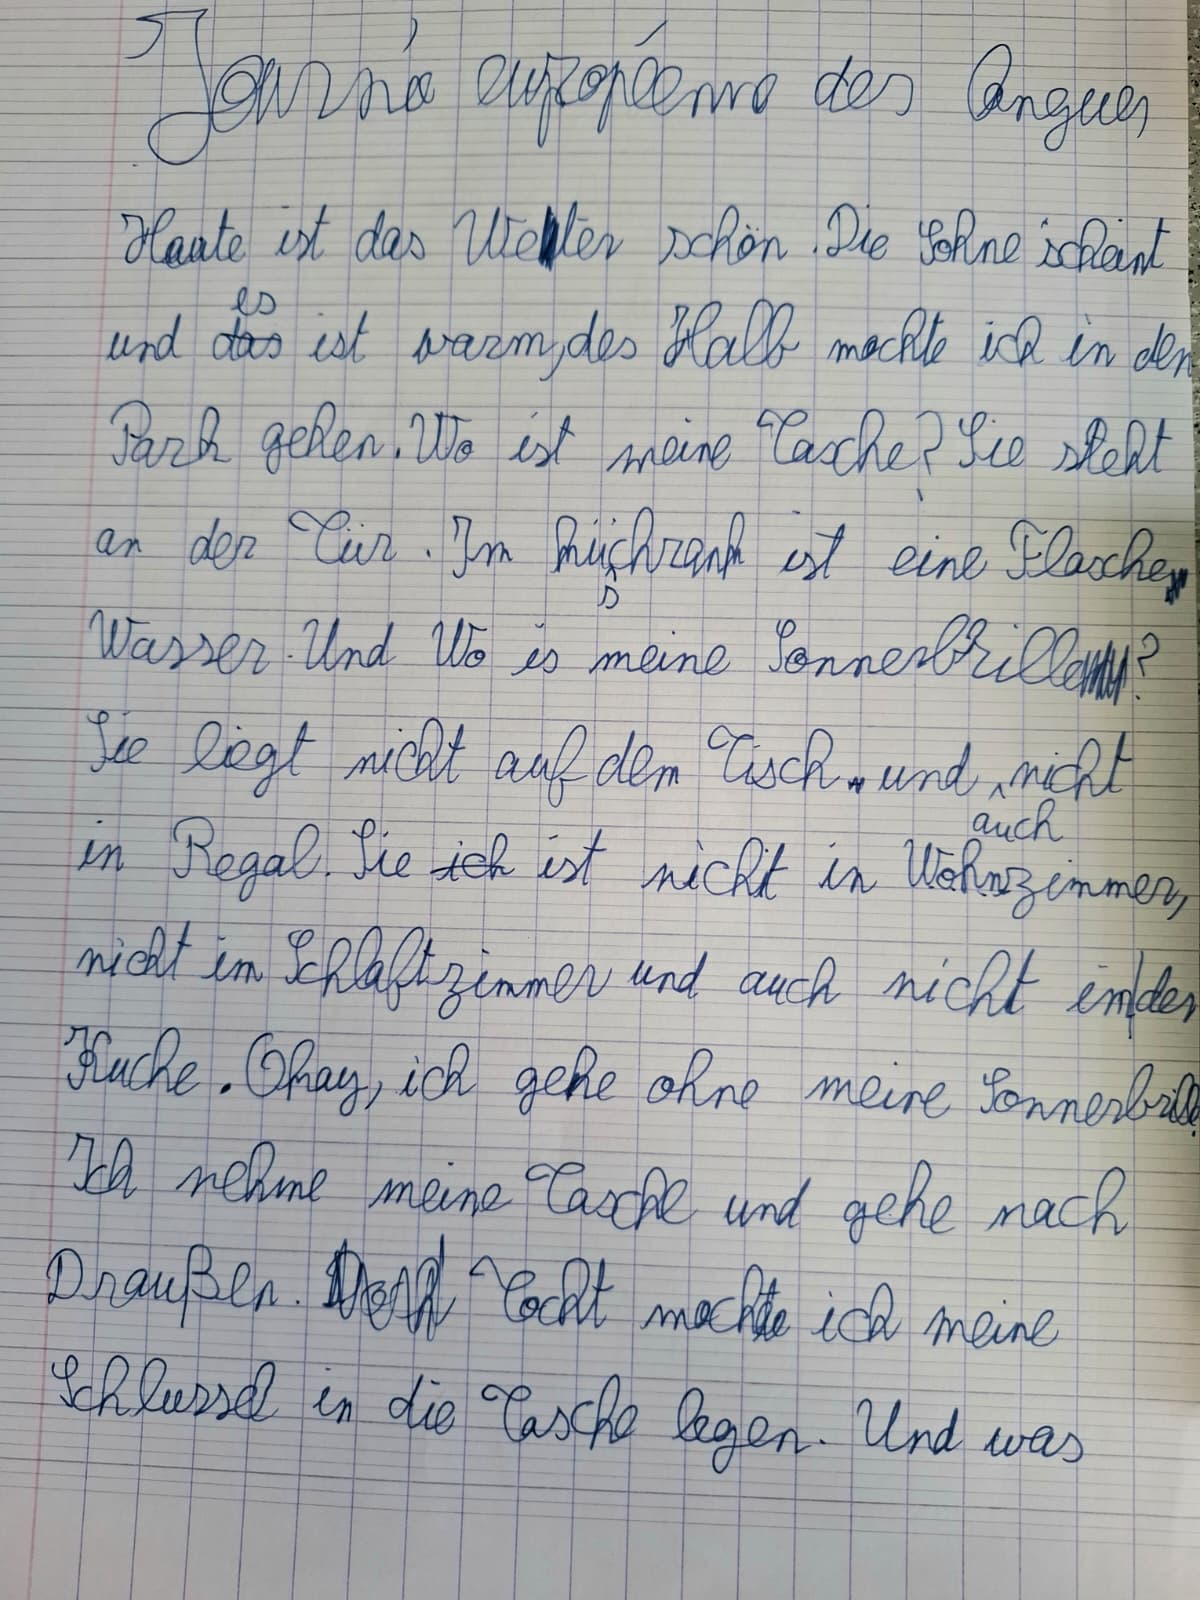 Journé européenne des langues
Haute ist das Wetter schön. Die Sohne scheint
und es ist warm, des Halb mochte ich in den
Park gehen. Wo ist meine Tasche? Sie steht
an der Tür. Im küschrank ist eine Flasche
Wasser. Und Wo is meine Sonnerbrille?
Sie liegt nicht auf dem Tisch und auch nicht
in Regal. Sie ist nicht in Wohnzimmer,
nicht im Schlaftzimmer und auch nicht in der
Kuche. Okay, ich gehe ohne meine Sonnerbrille.
Ich nehme meine Tasche und gehe nach
Draußen. mochte ich meine
Schlussel in die Tasche legen. Und was